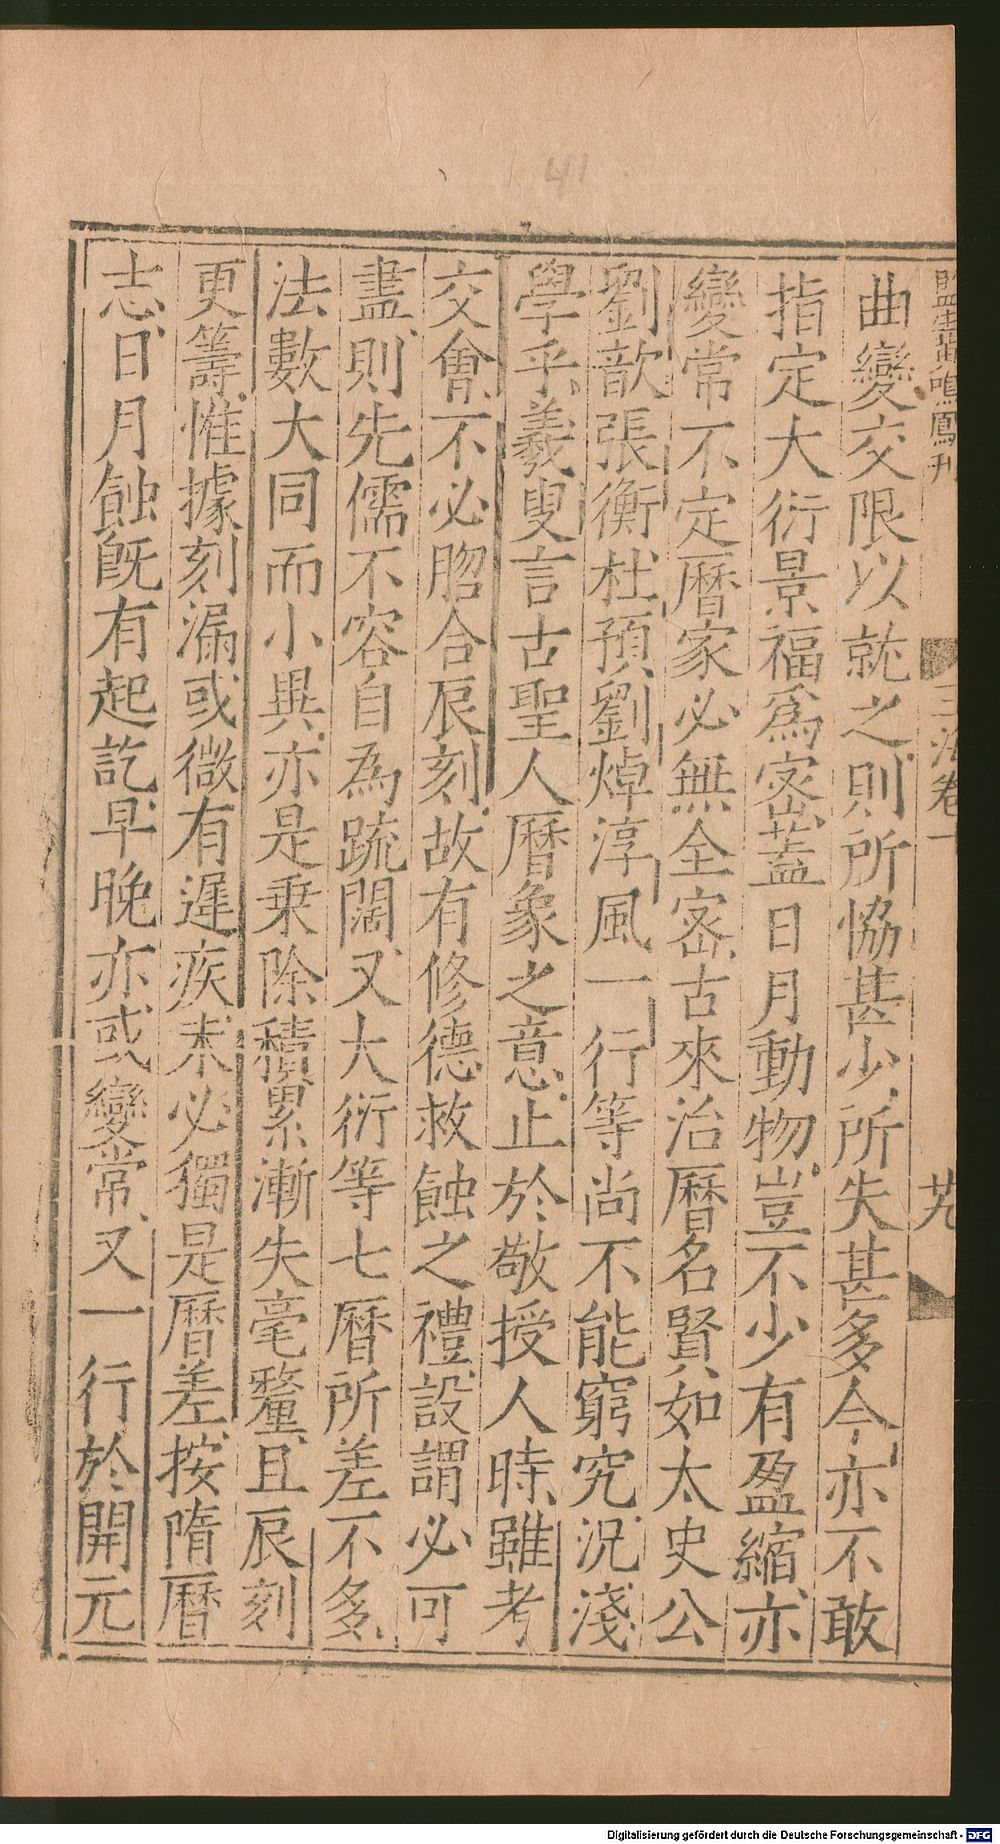 曲變交限以就之則所恊甚少所失甚多今亦不敢
指定大衍景福爲宻蓋日月動物豈不少有盈縮亦
變常不定曆家必無全宻古來治曆名賢如太史公
劉歆張衡杜預劉焯淳風一行等尚不能窮究況淺
學乎羲叟言古聖人曆象之意止於敬授人時雖考
交會不必脗合辰刻故有修德救蝕之禮設謂必可
盡則先儒不容自為疏闊又大衍等七曆所差不多
法數大同而小異亦是乗除積累漸失毫釐且辰刻
更籌惟據刻漏或微有遲疾未必獨是曆差按隋曆
志日月蝕旣有起訖早晚亦或變常又一行於開元
三法卷一
41
Digitalisierung gefördert durch die Deutsche Forschungsgemeinschaft - DFG